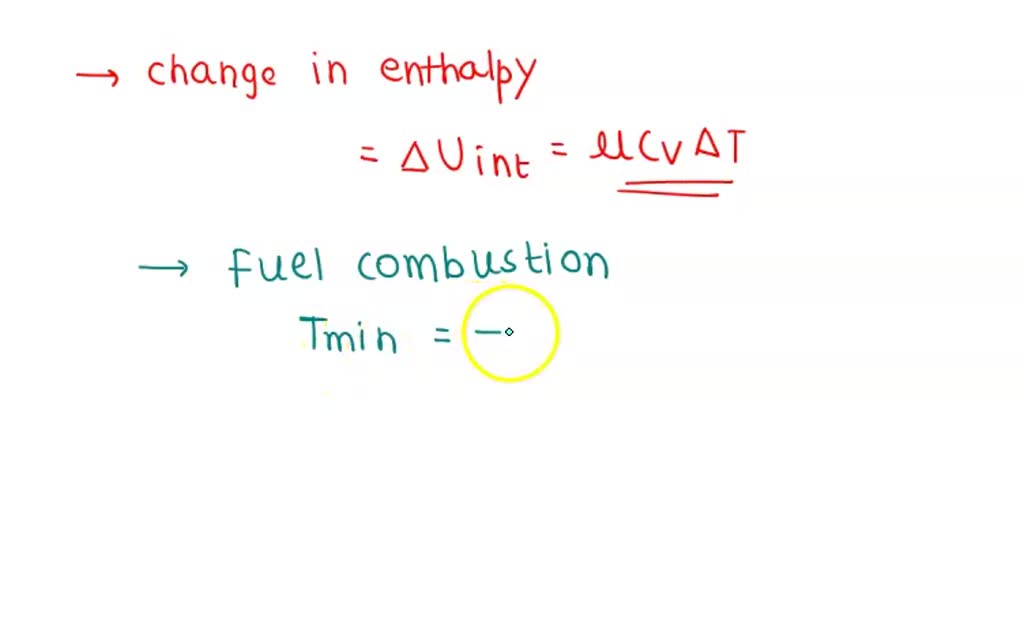 → change in enthalpy
= ΔUint = μCvΔT
→ fuel combustion
Tmin = –